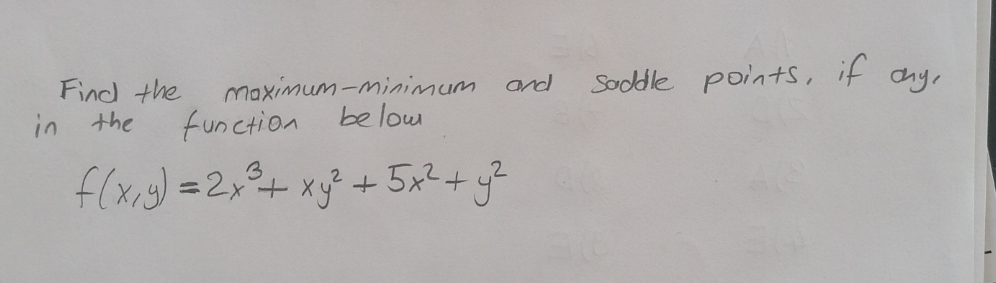 Find the maximum-minimum and saddle points, if any,
in the function below
f(x,y) = 2x³ + xy² + 5x² + y²